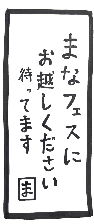 まなフェスに
お越しください
待ってます
ま